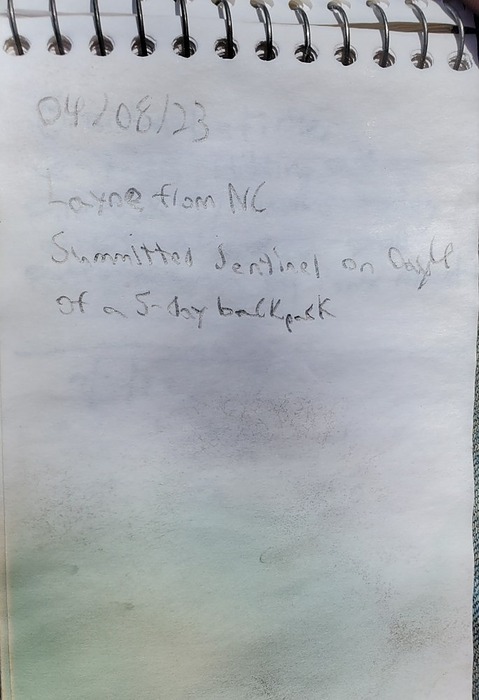 04/08/23
Layne from NC
Summitted Sentinel on Day
of a 5-day backpack